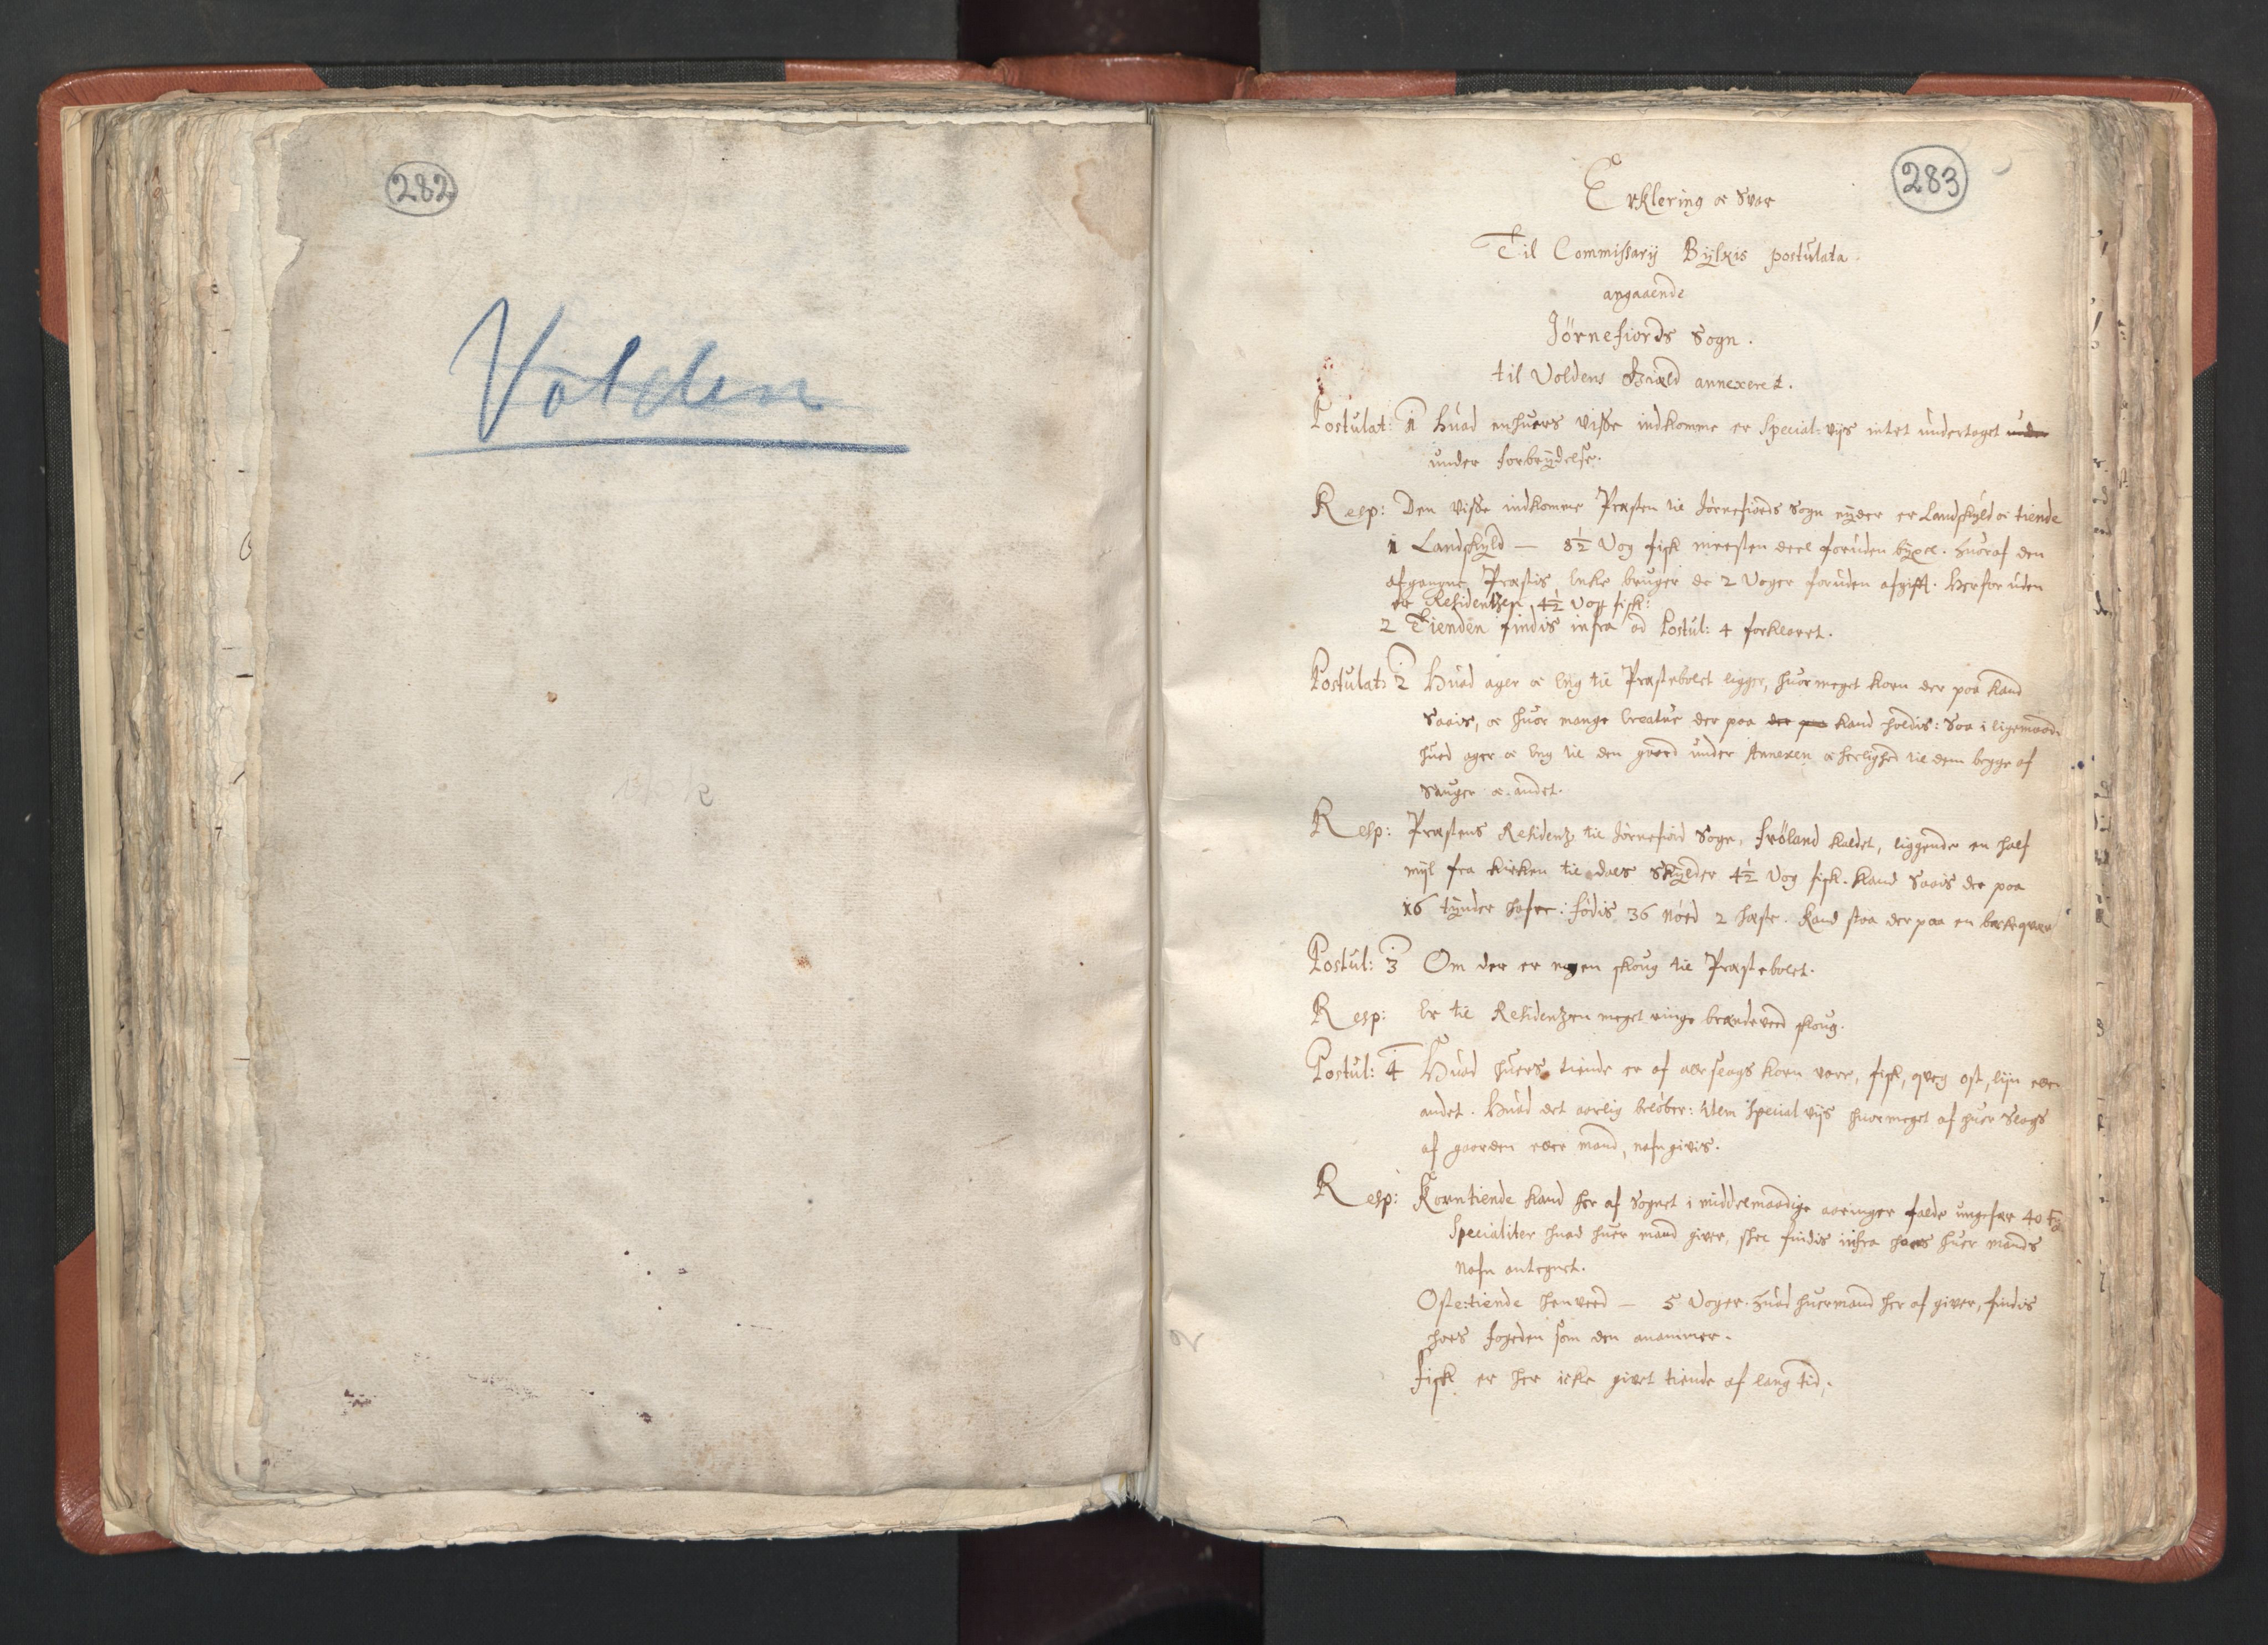 282
Volden
283
Erklering oc Svar
Til Commissarij Bÿlkis postulata.
angaaende
Jørnefiords Sogn.
til Voldens Giæld annexeret.
Postulat: 1 Huad enhuers Visse indkomme er Special: vijs intet undertaget under
under forbrÿdelse.
Resp: Den Visse indkomme Præsten til Jørnefiords Sogn nÿder er Landskÿld oc tiende
1 Landskÿld — 8½ Vog fisk meesten deel foruden bÿxel. Huoraf den
afgangne Præstis Encke bruger de 2 Voger foruden afgifft. Herforuden
er Residentzen 4½ Vog fisk:
2 Tienden findis infra ad Postul: 4 forklaret.
Postulat: 2 Huad ager oc Eng til Præstebolet ligger, huor meget korn der paa kand
Saais, oc huor mange Creatur der paa der paa kand holdis: Saa i ligemaade
huad ager oc Eng til den gaard under Annexen oc herlighed til dem begge af
Sauger oc andet.
Resp: Præstens Residentz til Jørnefiord Sogn, Frøland kaldet, liggende en half
mijl fra kircken til dals Skÿlder 4½ Vog fisk. Kand Saais der paa
16 tÿnder hafer: Fødis 36 Nød 2 heste. Kand staa der paa en beckeqvern
Postul: 3 Om der er nogen skoug til Præstebolet.
Resp: Er til Residentzen meget ringe brændeveed skoug.
Postul: 4 Huad huers tiende er af alle slags korn vare, fisk, qveg ost, lijn eller
andet. Huad det aarlig beløber: Item Special vijs huor meget af huer Slags
af gaarden eller mand, nafngivis.
Resp: Korntiende kand her af Sognet i middelmaadige aaringer falde ungefær 40 tr
Specialiter huad huer mand giver, skal findis infra hoes huer mands
Nafn antegnet.
Oste:tiende henved — 5 Voger. Huad huermand her af giver, findis
hoes fogeden som den anammer.
Fisk er her icke givet tiende af lang tid.